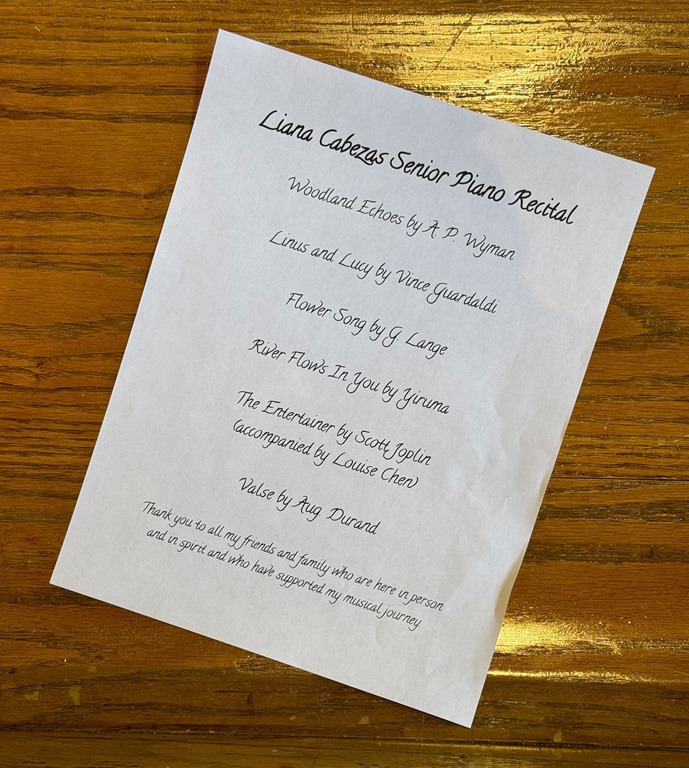 Liana Cabezas Senior Piano Recital
Woodland Echoes by A. P. Wyman
Linus and Lucy by Vince Guardaldi
Flower Song by G. Lange
River Flows In You by Yiruma
The Entertainer by Scott Joplin
(accompanied by Louise Chen)
Valse by Aug. Durand
Thank you to all my friends and family who are here in person
and in spirit and who have supported my musical journey